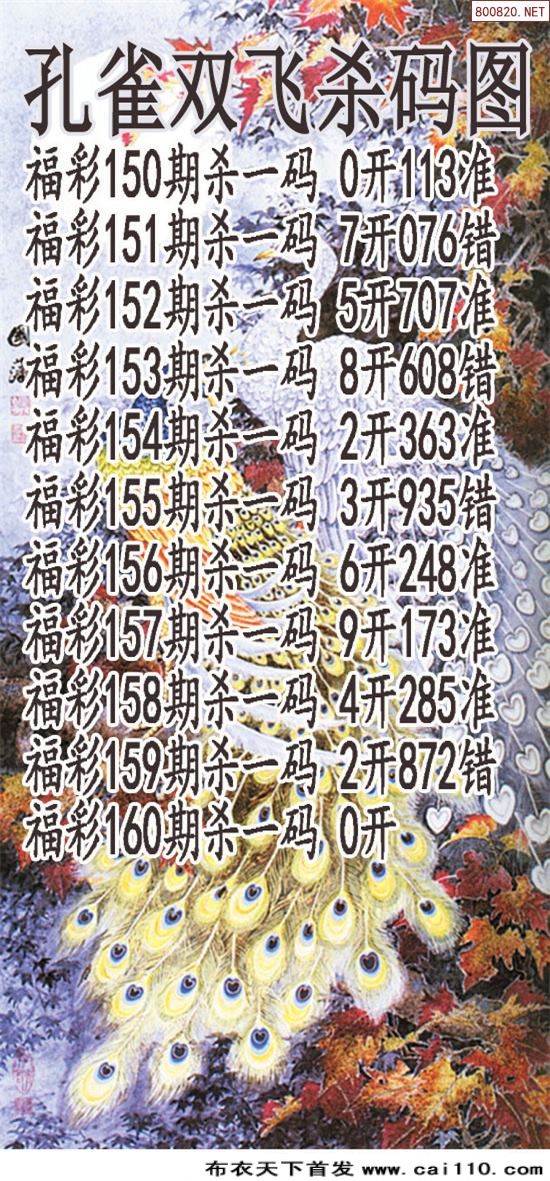 800820.NET
孔雀双飞杀码图
福彩150期杀一码 0开113准
福彩151期杀一码 7开076错
福彩152期杀一码 5开707准
福彩153期杀一码 8开608错
福彩154期杀一码 2开363准
福彩155期杀一码 3开935错
福彩156期杀一码 6开248准
福彩157期杀一码 9开173准
福彩158期杀一码 4开285准
福彩159期杀一码 2开872错
福彩160期杀一码 0开
布衣天下首发 www.cai110.com